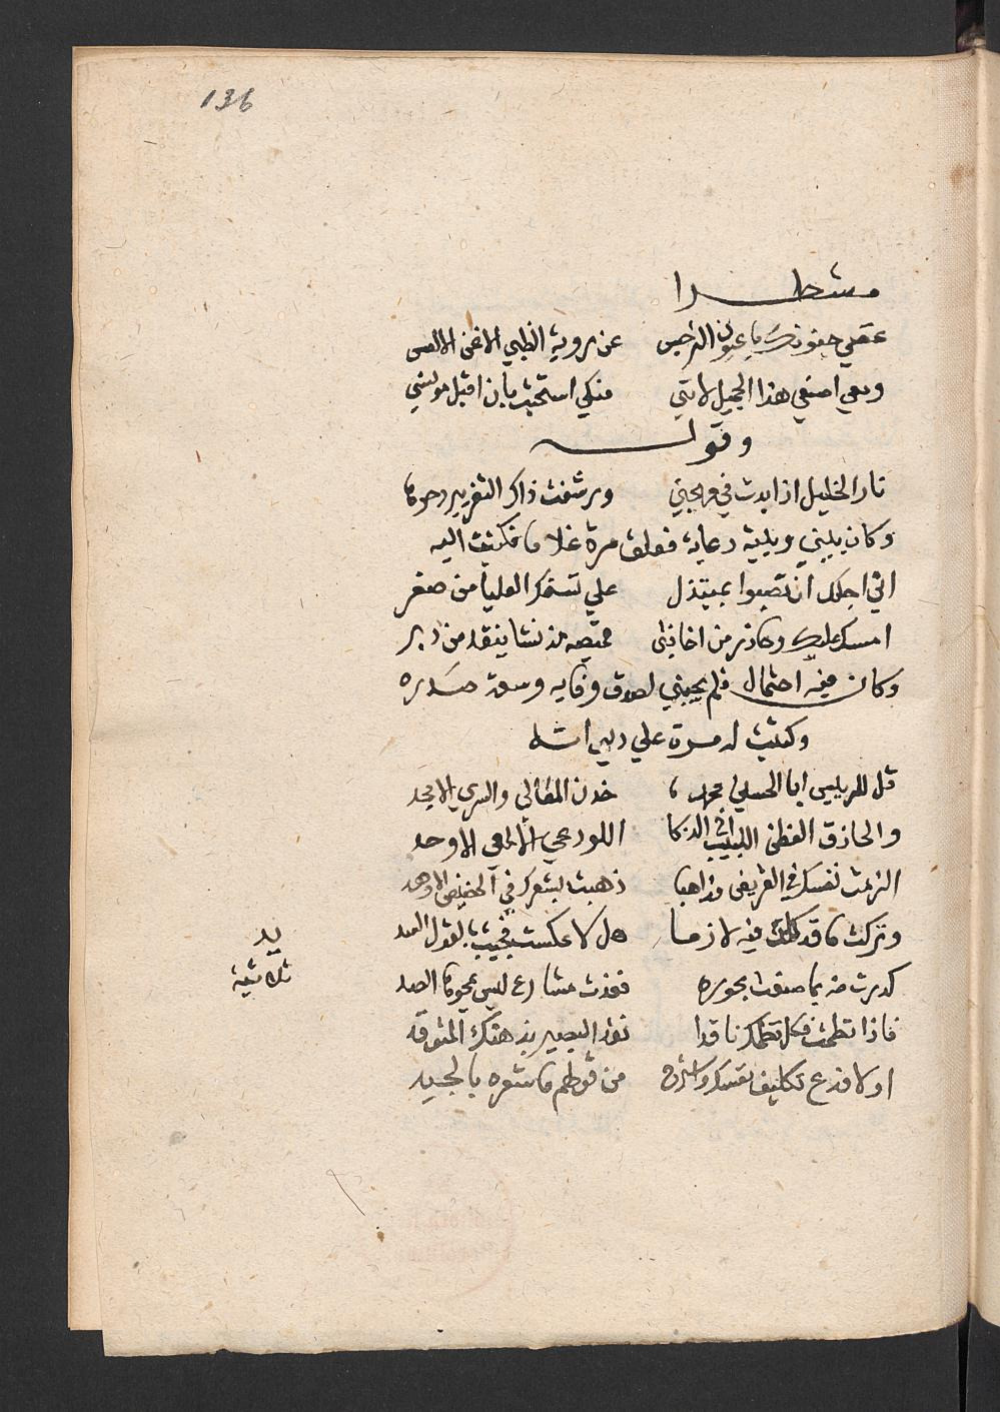 136
مشطرا
غضي جفونك يا عيون النرجس عن روية الظبي الاغن الالعس
ودعي اصنعي هذا الجميل لانني منكي استحيت بان اقبل مونسي
وقوله
نار الخليل اذا بدت في مهجتي ورشفت ذاكر الثغر
وكان بيني وبينه دعابة فعلق مرة غلاما فكتبت اليه
اني اجلك ان تصبوا بمبتذل علي تسنمك العليا من صغر
امسك عليك وحاذر من اخا قميصه مذ نشا ينقد من دبر
وكان فيه احتمال فلم يجبني لصدق وفايه وسعة صدره
وكتبت له مرة علي
قل للرييس ابا الحسين محمد خدن المعالي والسري الامجد
والحاذق الفطن اللبيب اخي الذكا اللوذعي الالمعي الاوحد
الزمت نفسك في القريض مذاهبا ذهبت بشعرك في الحضيض الاوهد
وتركت ما قد كان فيه لازما هل لا عكست فجيت بالقول السد
يد
ثلاثية
كدرت منه بما صنعت بحوره فغدت مشارع ليس
فاذا نظمت فكن لنظمك ناقدا نقد البصير بذهنك المتوقد
او لا فدع تكليف نفسك واسترح من قولهم ما شعره بالجيد